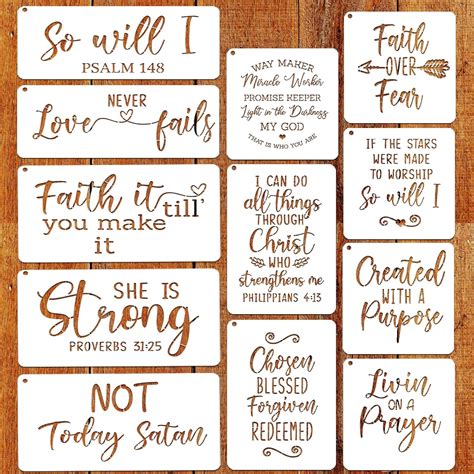 So will I
PSALM 148
NEVER
Love fails
Faith it till'
you make
it
SHE IS
Strong
PROVERBS 31:25
NOT
Today Satan
WAY MAKER
Miracle Worker
PROMISE KEEPER
Light in the Darkness
MY GOD
THAT IS WHO YOU ARE
I CAN DO
all things
THROUGH
Christ
WHO
strengthens me
PHILIPPIANS 4:13
Chosen
BLESSED
Forgiven
REDEEMED
Faith
OVER
Fear
IF THE STARS
WERE MADE
TO WORSHIP
So will I
Created
WITH A
Purpose
Livin
ON A
Prayer